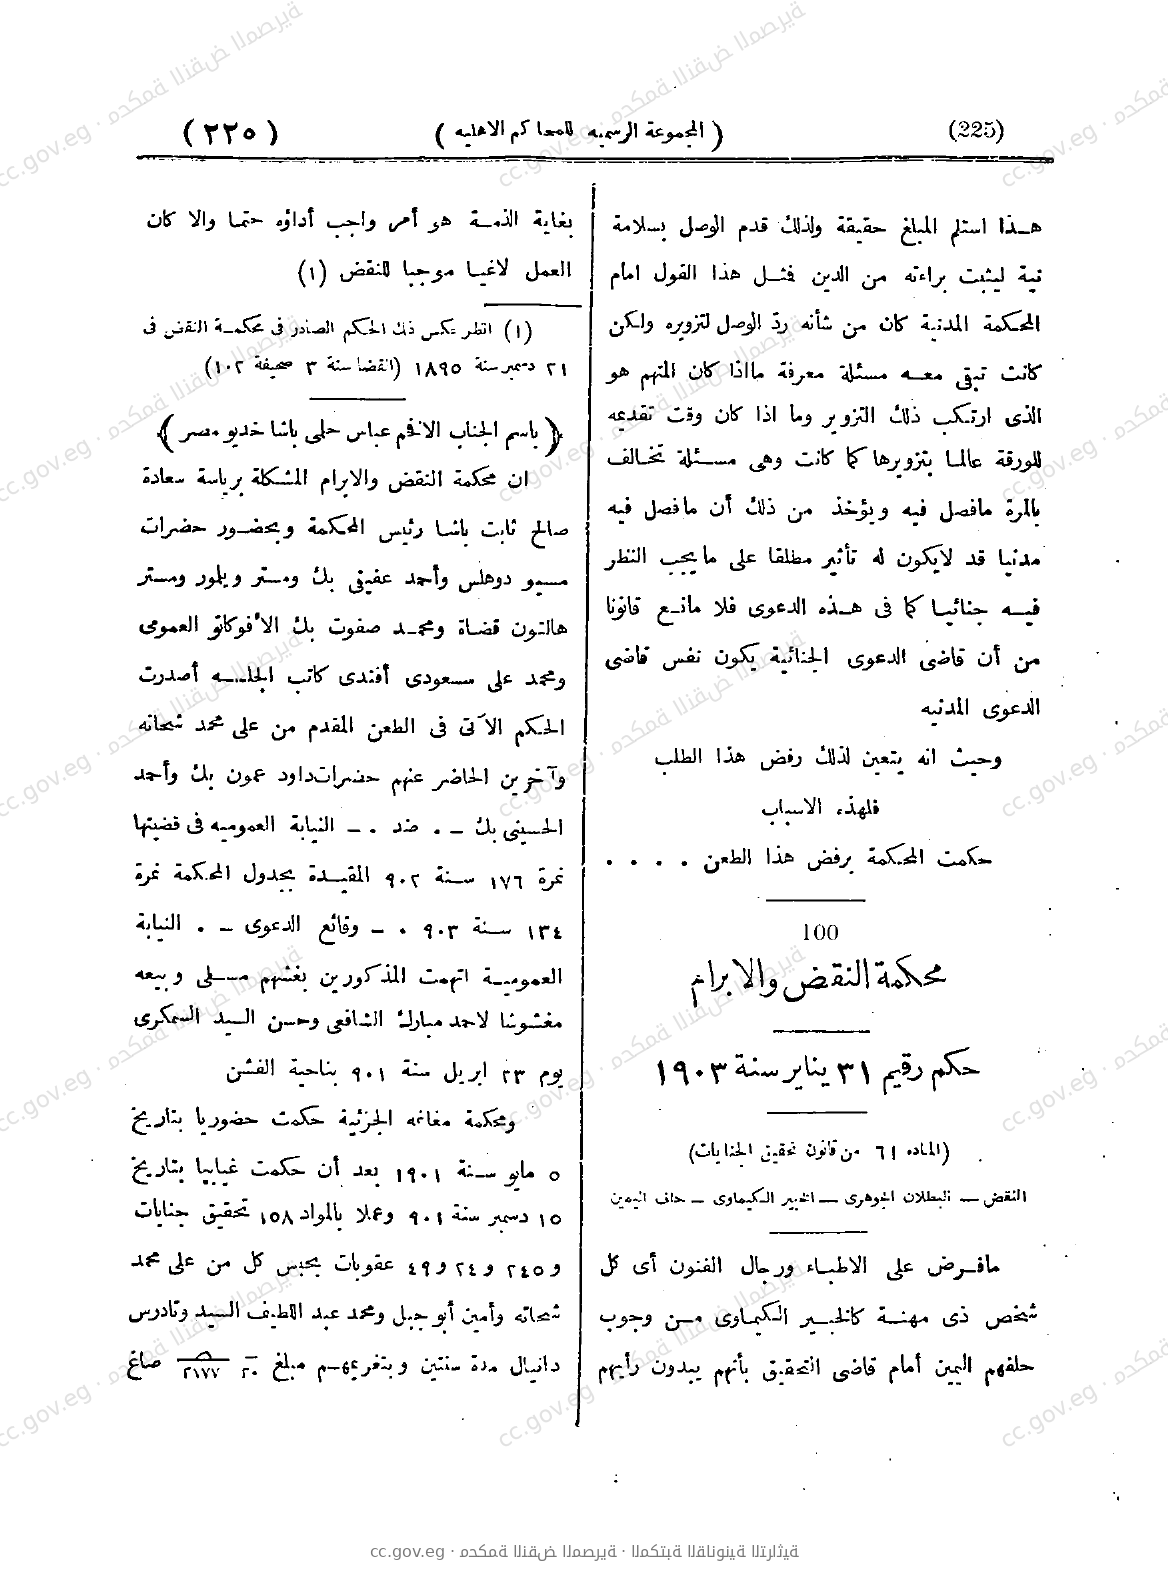 (225)
( المجموعة الرسمیه للمحاكم الاهلیه )
( ٢٢٥ )
هـذا استلم المبلغ حقیقة ولذلك قدم الوصل بسلامة
نیة لیثبت براءته من الدین فثـل هذا القول امام
المحـکمة المدنیة کان من شأنه ردّ الوصل لتزویره ولکن
کانت تبقی معـه مسئلة معرفة مااذا کان المتهم هو
الذی ارتکب ذلك التزویر وما اذا کان وقت تقدیمه
للورقة عالما بتزویرها کما کانت وهی مسـئلة تخـالف
بالمرة مافصل فیه ویؤخذ من ذلك أن مافصل فیه
مدنیا قد لایکون له تأثیر مطلقا علی مایجب النظر
فیـه جنائیـا کما فی هـذه الدعوی فلا مانـع قانونا
من أن قاضی الدعوی الجنائیة یکون نفس قاضی
الدعوی المدنیه
وحیث انه یتعین لذلك رفض هذا الطلب
فلهذه الاسباب
حکمت المحکمة برفض هذا الطعن . . . .
100
محکمة النقض والابرام
حکم رقیم ٣١ ینایر سنة ١٩٠٣
(الماده ٦١ من قانون تحقیق الجنایات)
النقض ــ البطلان الجوهری ــ الخبیر الکیماوی ــ حلف الیمین
مافـرض علی الاطبـاء ورجال الفنون أی کل
شخص ذی مهنـة کالخبـیر الکیماوی مـن وجوب
حلفهم الیمین أمام قاضی التحقیق بأنهم یبدون رأیهم
بغایة الذمـة هو أمر واجب أداؤه حتما والا کان
العمل لاغیـا موجبا للنقض (١)
(١) انظر عکس ذلك الحکم الصادر فی محکمـة النقض فی
٢١ دسمبر سنة ١٨٩٥ (القضا سنة ٣ صحیفة ١٠٢)
﴿ باسم الجناب الافخم عباس حلمی باشا خدیو مصر ﴾
ان محکمة النقض والابرام المشکلة بریاسة سعادة
صالح ثابت باشا رئیس المحکمة وبحضـور حضرات
مسـیو دوهلس وأحمد عفیفی بك ومستر ویلمور ومستر
هالتون قضـاة ومحمـد صفوت بك الأفوکاتو العمومی
ومحمد علی مسـعودی أفندی کاتب الجلسـه أصدرت
الحـکم الآتی فی الطعن المقدم من علی محمد شحاته
وآخرین الحاضر عنهم حضرات داود عمون بك وأحمد
الحسینی بك ــ . ضد . ــ النیابة العمومیه فی قضیتها
نمرة ١٧٦ سـنة ٩٠٢ المقیـدة بجدول المحـکمة نمرة
١٣٤ سـنة ٩٠٣ . ــ وقائع الدعوی ــ . النیابة
العمومیـة اتهمت المذکورین بغشهم مسـلی وبیعه
مغشوشا لاحمد مبارك الشافعی وحسن السید السمکری
یوم ٢٣ ابریل سنة ٩٠١ بناحیة الفشن
ومحکمة مغاغه الجزئیة حکمت حضوریا بتاریخ
٥ مایو سـنة ١٩٠١ بعد أن حکمت غیابیا بتاریخ
١٥ دسمبر سنة ٩٠١ وعملا بالمواد ١٥٨ تحقیق جنایات
و ٢٤٥ و ٢٤ و ٤٩ عقوبات بحبس کل من علی محمد
شحاته وأمین أبو جبل ومحمد عبد اللطیف السید وتادرس
دانیال مدة سنتین وبتغریمهـم مبلغ ٢٠ ٢١٧٧ صاغ
cc.gov.eg · محكمة النقض المصرية · المكتبة القانونية التراثية